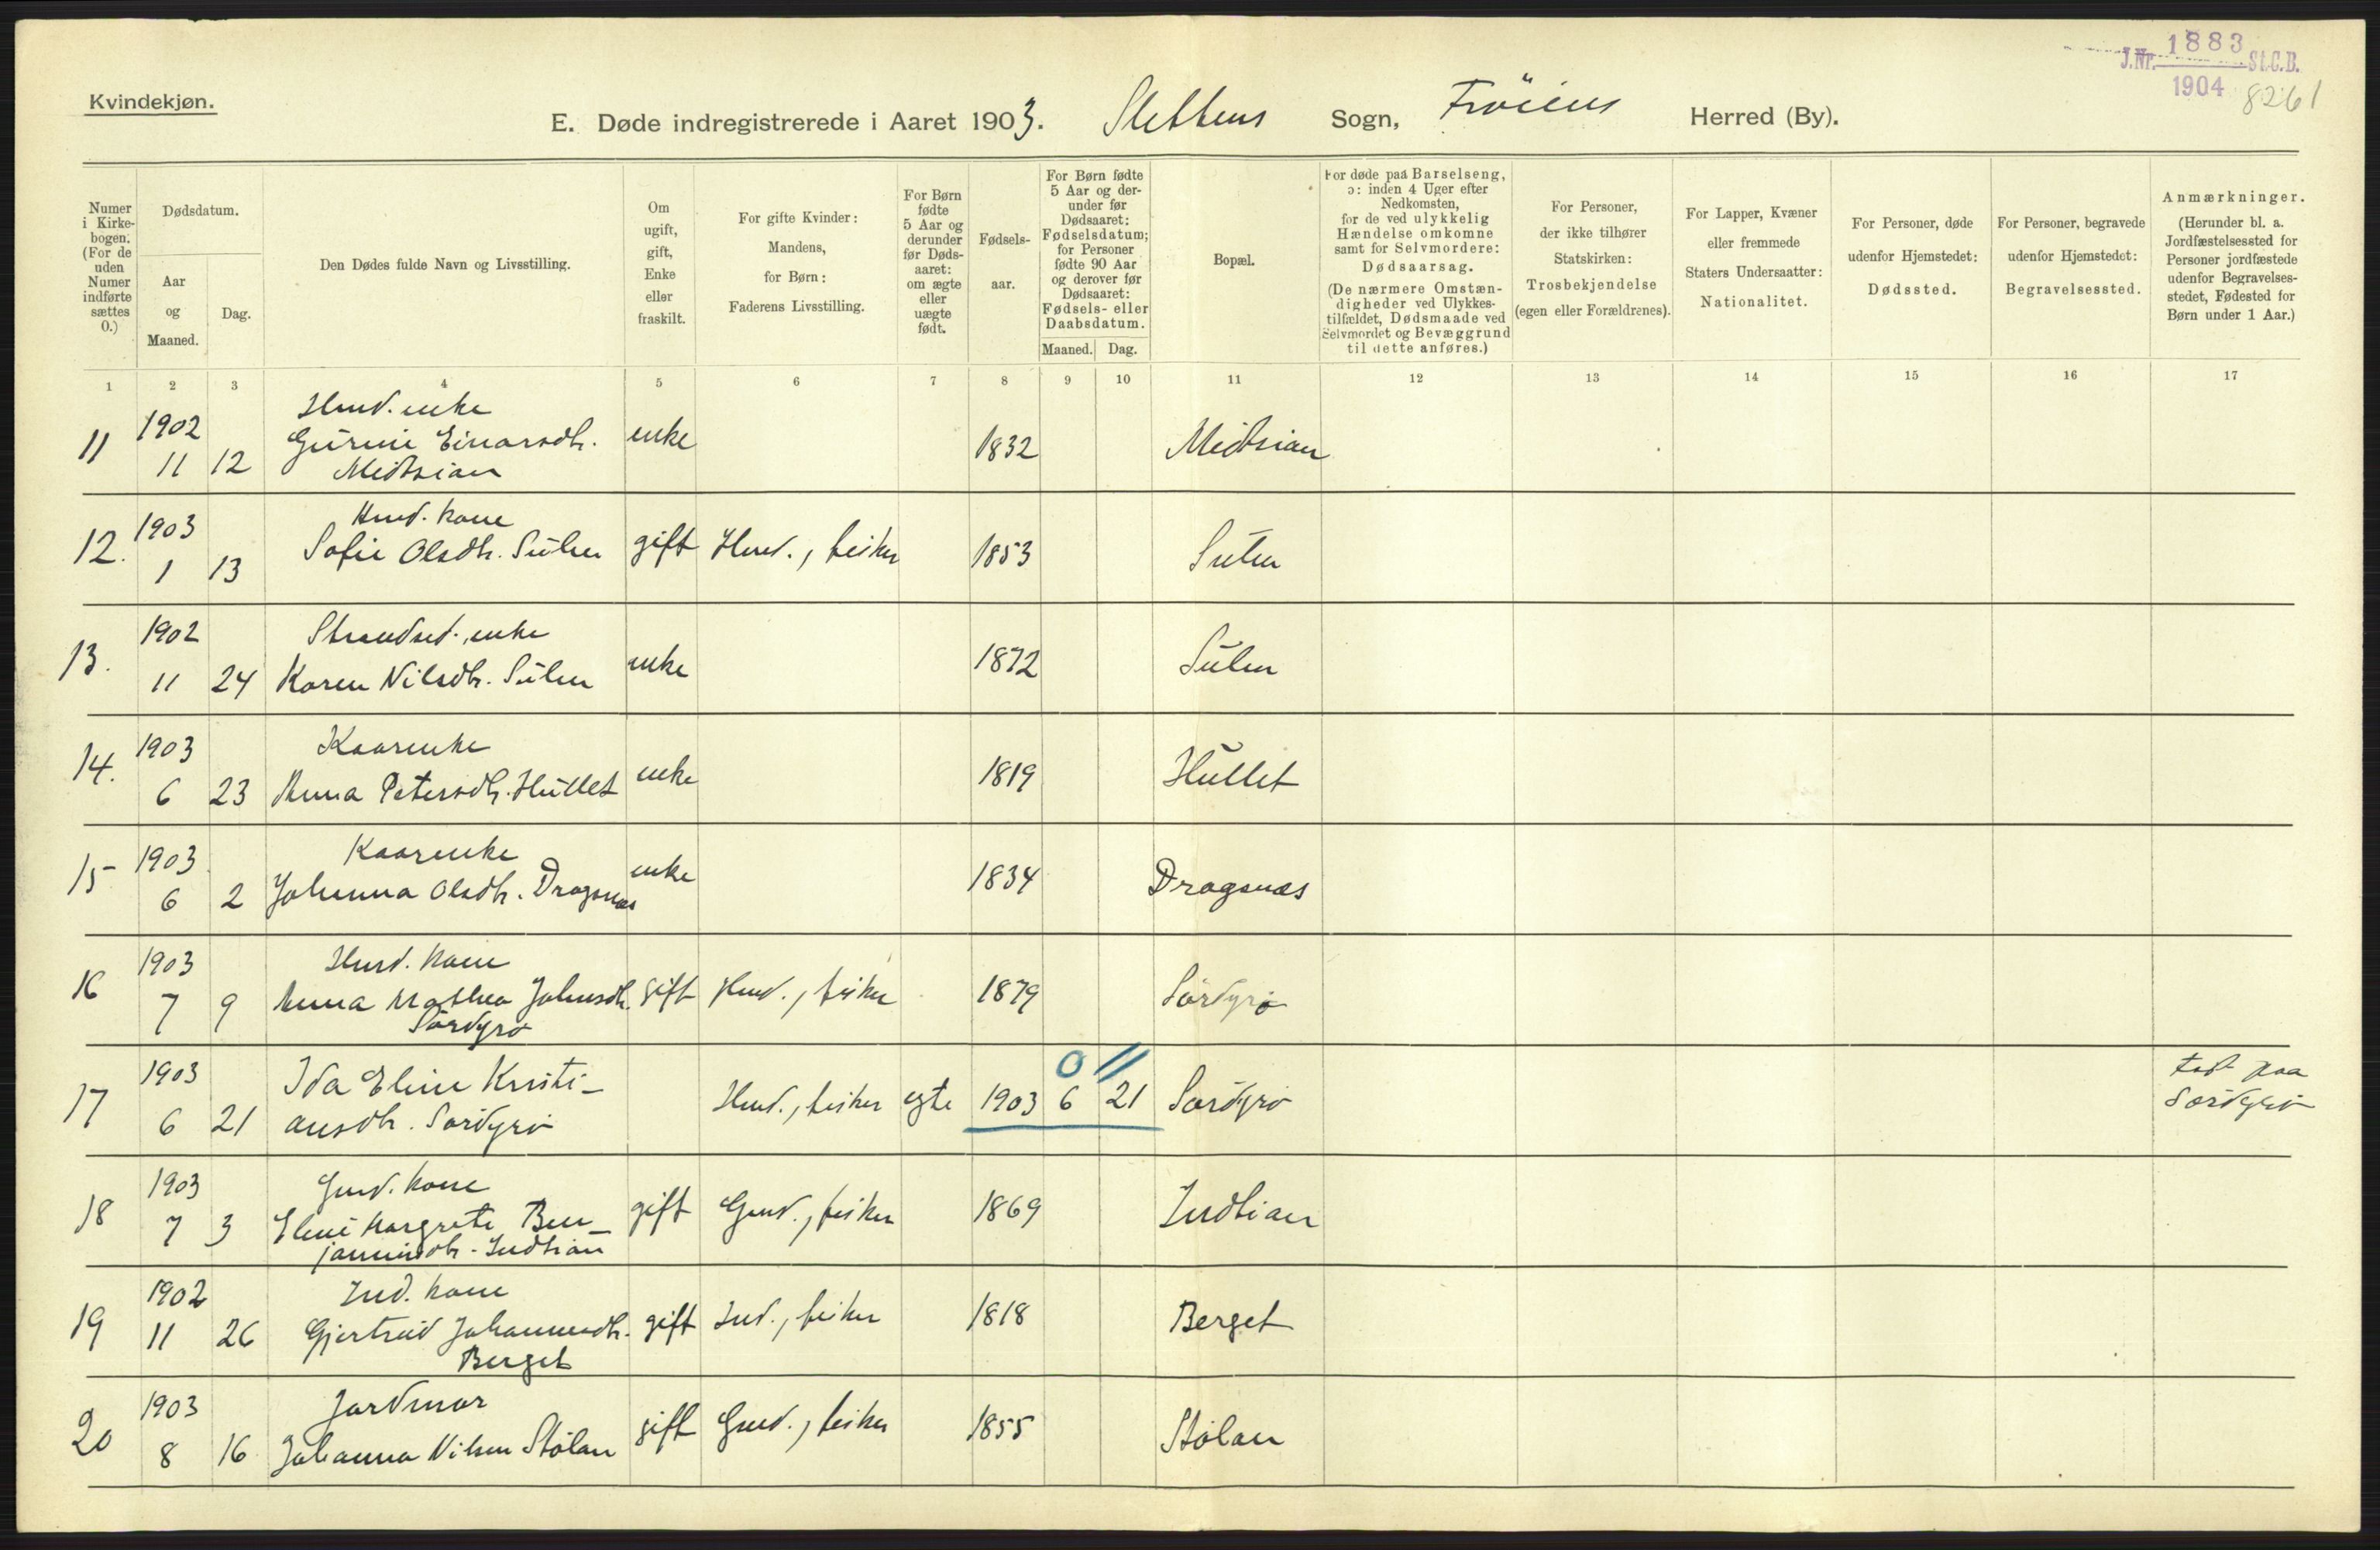 Kvindekjøn.
J.Nr. 1883 St.C.B.
1904 8261
E. Døde indregistrerede i Aaret 1903. Slettens Sogn, Frøiens Herred (By).
Numer i Kirkebogen. (For de uden Numer indførte sættes 0.)
Dødsdatum.
Aar og Maaned.
Dag.
Den Dødes fulde Navn og Livsstilling.
Om ugift, gift, Enke eller fraskilt.
For gifte Kvinder: Mandens, for Børn: Faderens Livsstilling.
For Børn fødte 5 Aar og derunder før Dødsaaret: om ægte eller uægte født.
Fødselsaar.
For Børn fødte 5 Aar og derunder før Dødsaaret: Fødselsdatum; for Personer fødte 90 Aar og derover før Dødsaaret: Fødsels- eller Daabsdatum.
Maaned. Dag.
Bopæl.
For døde paa Barselseng, ɔ: inden 4 Uger efter Nedkomsten, for de ved ulykkelig Hændelse omkomne samt for Selvmordere: Dødsaarsag. (De nærmere Omstændigheder ved Ulykkestilfældet, Dødsmaade ved Selvmordet og Bevæggrund til dette anføres.)
For Personer, der ikke tilhører Statskirken: Trosbekjendelse (egen eller Forældrenes).
For Lapper, Kvæner eller fremmede Staters Undersaatter: Nationalitet.
For Personer, døde udenfor Hjemstedet: Dødssted.
For Personer, begravede udenfor Hjemstedet: Begravelsessted.
Anmærkninger. (Herunder bl. a. Jordfæstelsessted for Personer jordfæstede udenfor Begravelsesstedet, Fødested for Børn under 1 Aar.)
1 2 3 4 5 6 7 8 9 10 11 12 13 14 15 16 17
11 1902 11 12 Husd. enke Gurine Einarsdtr. Midtsian enke 1832 Midtsian
12. 1903 1 13 Husd. kone Sofie Olsdtr. Sulen gift Husd., fisker 1853 Sulen
13. 1902 11 24 Strandsid. enke Karen Nilsdtr. Sulen enke 1872 Sulen
14. 1903 6 23 Kaarenke Anna Petersdtr. Hullet enke 1819 Hullet
15 1903 6 2 Kaarenke Johanna Olsdtr. Dragsnæs enke 1834 Dragsnæs
16 1903 7 9 Husd. kone Anna Mathea Johnsdtr. Sørdyrø gift Husd., fisker 1879 Sørdyrø
17 1903 6 21 Ida Eline Kristiansdtr. Sørdyrø Husd., fisker egte 1903 6 21 Sørdyrø født paa Sørdyrø
0 11
18 1903 7 3 Gmd. kone Eline Margrete Benjaminsdtr. Indtian gift Gmd., fisker 1869 Indtian
19 1902 11 26 Ind. kone Gjertrud Johannesdtr. Berget gift Ind., fisker 1818 Berget
20 1903 8 16 Jordmor Johanna Nilsen Stølan gift Gmd., fisker 1855 Stølan